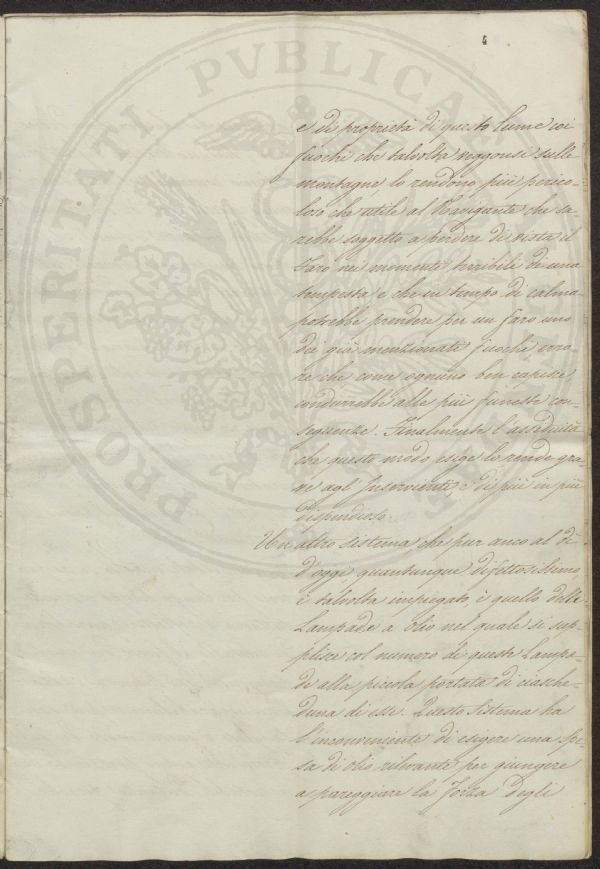 4
e di proprietà di questo lume coi
fuochi che talvolta veggonsi sulle
montagne lo rendono più perico-
loso che utile al Navigante che sa-
rebbe soggetto a perdere di vista il
Faro nei momenti terribili di una
tempesta e che in tempo di calma
potrebbe prendere per un faro uno
dei già menzionati fuochi erro-
re che come ognuno ben capisce
condurrebbe alle più funeste con-
seguenze. Finalmente l'assiduità
che questo modo esige lo rende gra-
ve agl'Inservienti, e di più in più
dispendioso.
Un altro sistema che pur anco al dì
d'oggi, quantunque difettosissimo
è talvolta impiegato, è quello delle
Lampade a olio nel quale si sup-
plisce col numero di queste Lampa-
de alla piccola portata di ciasche-
duna di esse. Questo sistema ha
l'inconveniente di esigere una spe-
sa di olio rilevante per giungere
a pareggiare la forza degli
PROSPERITATI PVBLICAE